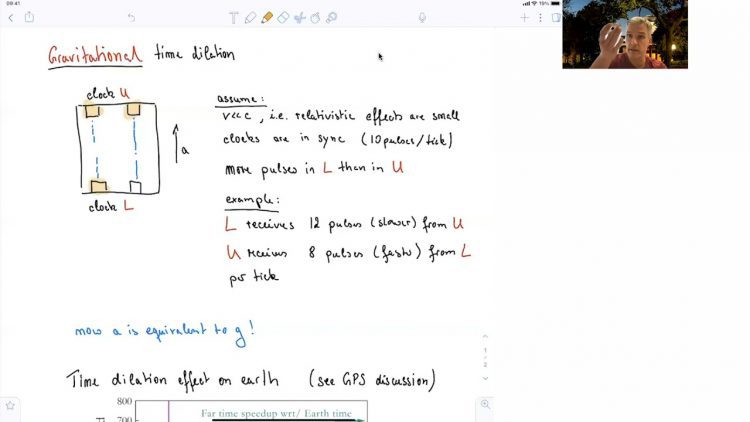 09:41
15%
Gravitational time dilation
clock U
assume:
v<<c, i.e. relativistic effects are small
clocks are in sync (10 pulses/tick)
a
more pulses in L than in U
clock L
example:
L receives 12 pulses (slower) from U
U receives 8 pulses (faster) from L
per tick
now a is equivalent to g!
1/2
Time dilation effect on earth (see GPS discussion)
800
Far time speedup wrt/ Earth time
700
600